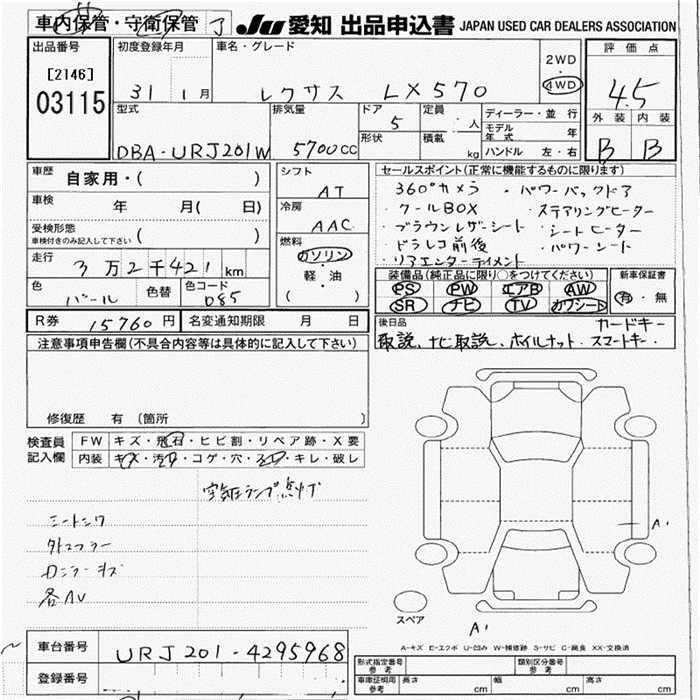 車内保管・守衛保管 了 JU 愛知 出品申込書 JAPAN USED CAR DEALERS ASSOCIATION
出品番号 初度登録年月 車名・グレード 2WD 評価点
[2146] 31 1月 レクサス LX570 4WD 4.5
03115 型式 排気量 ドア 5 定員 人 ディーラー・並行 外装 内装
モデル年式 年
DBA-URJ201W 5700cc 形状 積載 kg ハンドル 左・右 B B
車歴 自家用・( ) シフト AT セールスポイント(正常に機能するものに限ります)
車検 年 月( 日) 冷房 AAC 360°カメラ ・パワーバックドア
・クールBOX ・ステアリングヒーター
受検形態 ( ) ・ブラウンレザーシート ・シートヒーター
車検付きのみ記入して下さい 燃料 ガソリン ・ドラレコ前後 ・パワーシート
走行 3万2千421km 軽・油 ・リアエンターテイメント
色 パール 色替 色コード 085 ( ) 装備品(純正品に限り○をつけてください) 新車保証書
PS PW エアB AW 有・無
SR ナビ TV カワシート
R券 15760円 名変通知期限 月 日 後日品 カードキー
取説、ナビ取説、ホイルナット、スマートキー、
注意事項申告欄(不具合内容等は具体的に記入して下さい)
修復歴 有 (箇所 )
検査員 FW キズ・飛石・ヒビ割・リペア跡・X要
記入欄 内装 キズ・汚レ・コゲ・穴・スレ・キレ・破レ
空気圧ランプ点灯
シートシワ
A'
各AU
スペア
A'
A-キズ E-エクボ U-凹み W-補修跡 S-サビ C-腐食 XX-交換済
車台番号 URJ201-4295968
登録番号 形式指定番号 参考 類別区分番号 参考
車庫証明用 参考 長さ cm 幅 cm 高さ cm